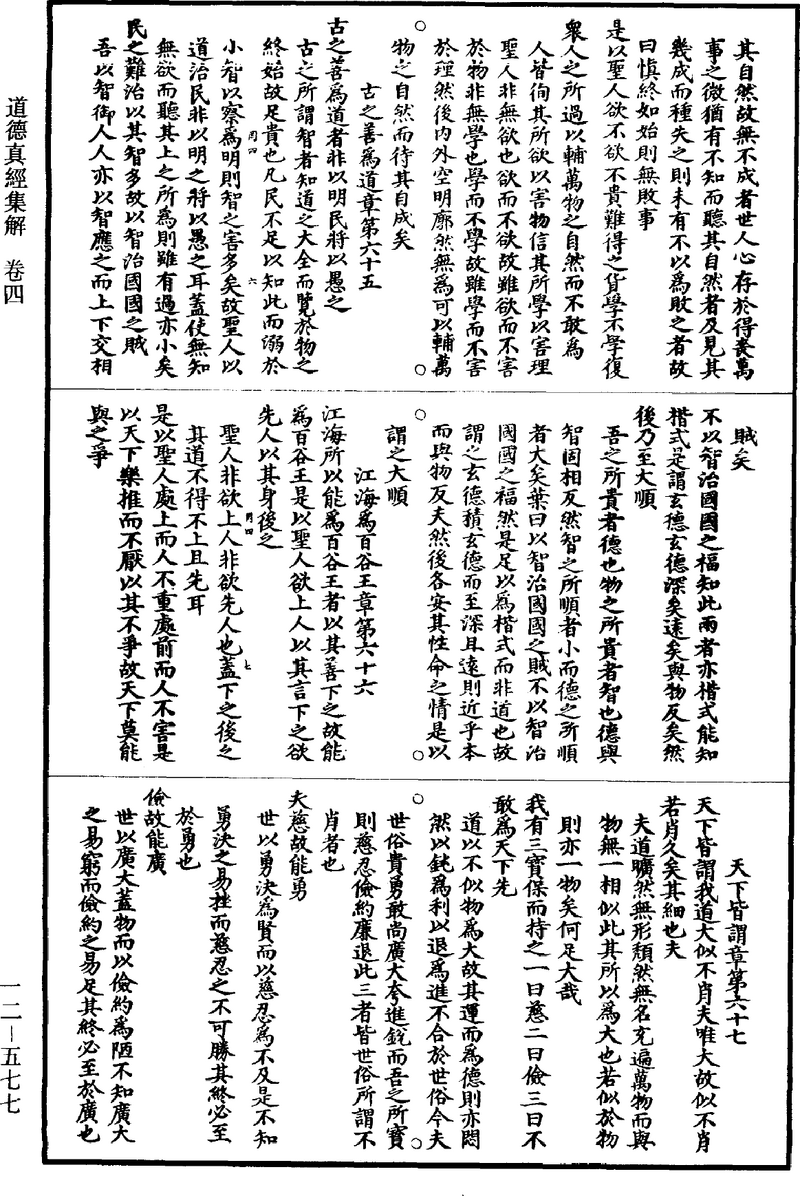 道德真經集解　卷四
一二—五七七
其自然故無不成者世人心存於得喪萬
事之微猶有不知而聽其自然者及見其
幾成而種失之則未有不以爲敗之者故
曰慎終如始則無敗事
是以聖人欲不欲不貴難得之貨學不學復
衆人之所過以輔萬物之自然而不敢爲
人皆徇其所欲以害物信其所學以害理
聖人非無欲也欲而不欲故雖欲而不害
於物非無學也學而不學故雖學而不害
於理然後内外空明廓然無爲可以輔萬
物之自然而待其自成矣
古之善爲道章第六十五
古之善爲道者非以明民將以愚之
古之所謂智者知道之大全而覽於物之
終始故足貴也凡民不足以知此而溺於
小智以察爲明則智之害多矣故聖人以
道治民非以明之將以愚之耳蓋使無知
無欲而聽其上之所爲則雖有過亦小矣
民之難治以其智多故以智治國國之賊
吾以智御人人亦以智應之而上下交相
賊矣
不以智治國國之福知此兩者亦楷式能知
楷式是謂玄德玄德深矣遠矣與物反矣然
後乃至大順
吾之所貴者德也物之所貴者智也德與
智固相反然智之所順者小而德之所順
者大矣葉曰以智治國國之賊不以智治
國國之福然是足以爲楷式而非道也故
謂之玄德積玄德而至深且遠則近乎本
而與物反夫然後各安其性命之情是以
謂之大順
江海爲百谷王章第六十六
江海所以能爲百谷王者以其善下之故能
爲百谷王是以聖人欲上人以其言下之欲
先人以其身後之
聖人非欲上人非欲先人也蓋下之後之
其道不得不上且先耳
是以聖人處上而人不重處前而人不害是
以天下樂推而不厭以其不爭故天下莫能
與之爭
天下皆謂章第六十七
天下皆謂我道大似不肖夫唯大故似不肖
若肖久矣其細也夫
夫道曠然無形頹然無名充遍萬物而與
物無一相似此其所以爲大也若似於物
則亦一物矣何足大哉
我有三寶保而持之一曰慈二曰儉三曰不
敢爲天下先
道以不似物爲大故其運而爲德則亦悶
然以鈍爲利以退爲進不合於世俗今夫
世俗貴勇敢尚廣大夸進銳而吾之所寶
則慈忍儉約廉退此三者皆世俗所謂不
肖者也
夫慈故能勇
世以勇決爲賢而以慈忍爲不及是不知
勇決之易挫而慈忍之不可勝其終必至
於勇也
儉故能廣
世以廣大蓋物而以儉約爲陋不知廣大
之易窮而儉約之易足其終必至於廣也